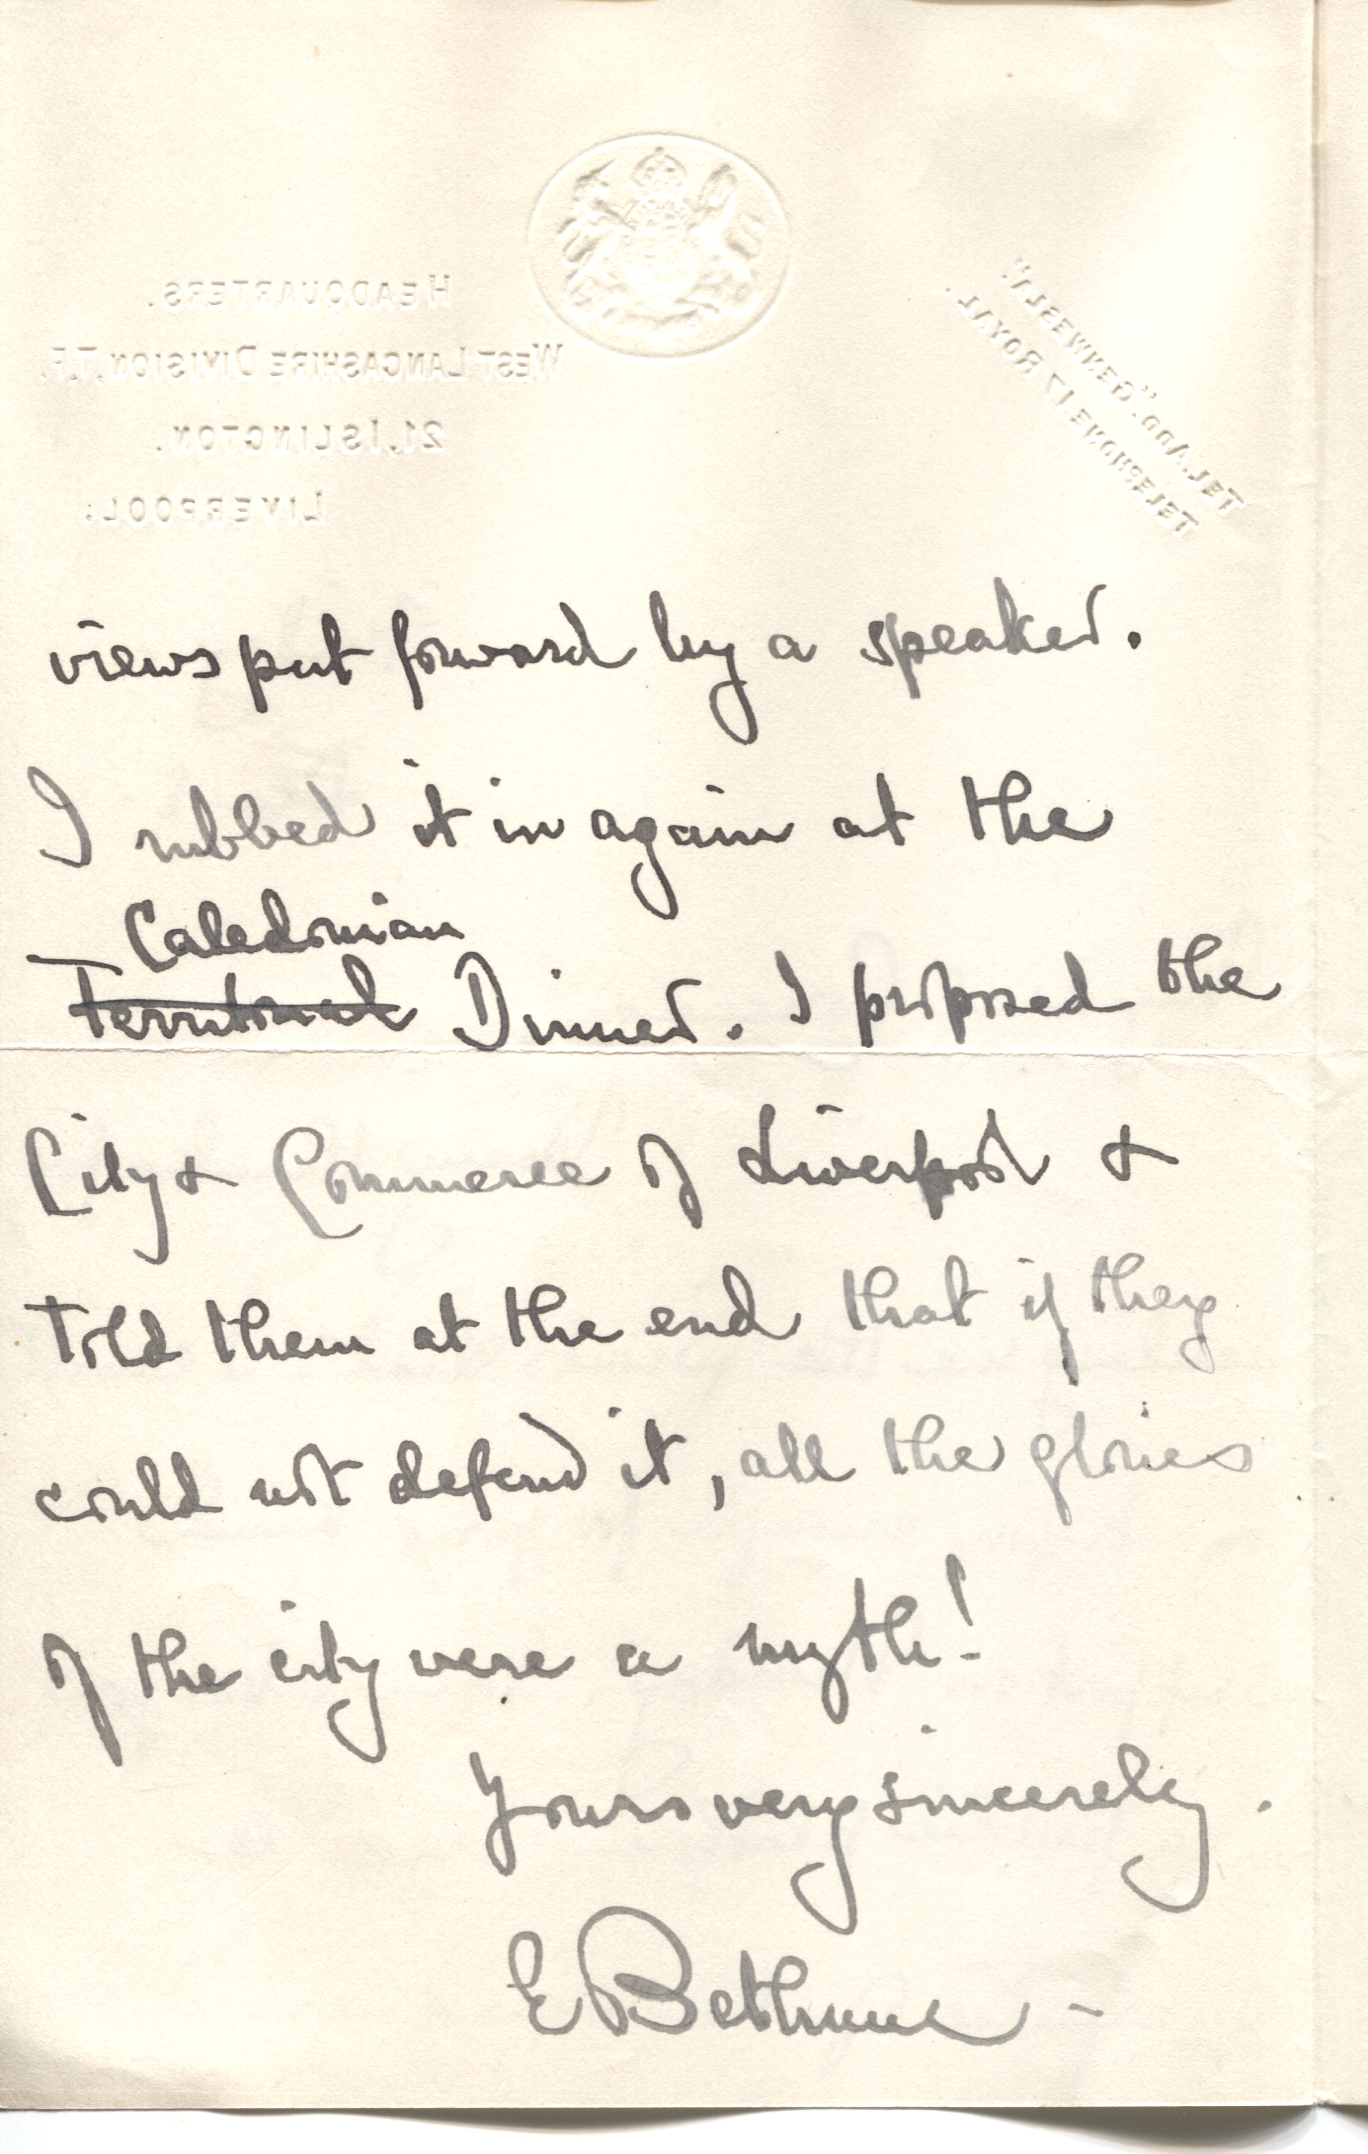 HEADQUARTERS.
WEST LANCASHIRE DIVISION, T.F.
21, ISLINGTON.
LIVERPOOL:
TEL. ADD. "GENWESLA".
TELEPHONE 17 ROYAL.
views put forward by a speaker.
I rubbed it in again at the
Caledonian
Territorial Dinner. I proposed the
City & Commerce of Liverpool &
told them at the end that if they
could not defend it, all the glories
of the city were a myth!
Yours very sincerely.
E Bethune -